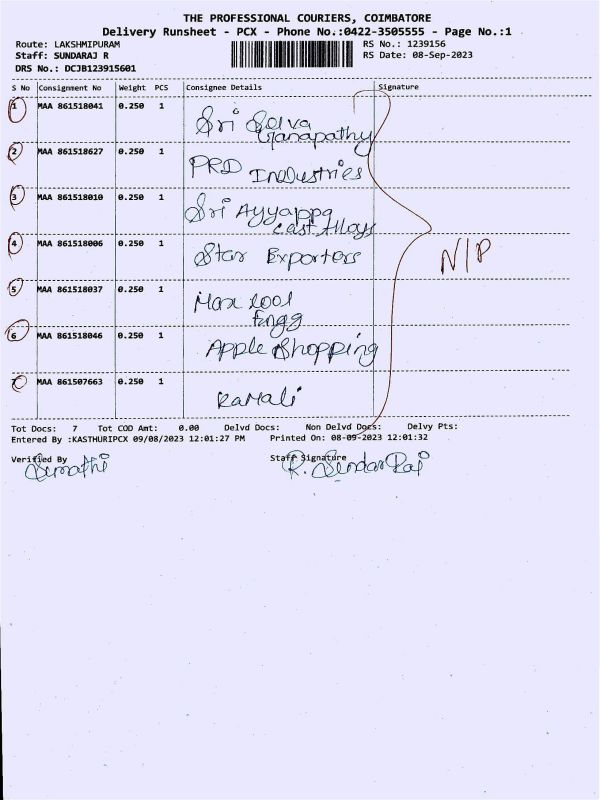 THE PROFESSIONAL COURIERS, COIMBATORE
Delivery Runsheet - PCX - Phone No.:0422-3505555 - Page No.:1
Route: LAKSHMIPURAM RS No.: 1239156
Staff: SUNDARAJ R RS Date: 08-Sep-2023
DRS No.: DCJB123915601
S No Consignment No Weight PCS Consignee Details Signature
1 MAA 861518041 0.250 1 Sri Selva
Ganapathy
2 MAA 861518627 0.250 1 PRD Industries
3 MAA 861518010 0.250 1 Sri Ayyappa
cast Alloys
4 MAA 861518006 0.250 1 Star Exporters
N/P
5 MAA 861518037 0.250 1 Max cool
Engg
6 MAA 861518046 0.250 1 Apple Shopping
7 MAA 861507663 0.250 1 Kamali
Tot Docs: 7 Tot COD Amt: 0.00 Delvd Docs: Non Delvd Docs: Delvy Pts:
Entered By :KASTHURIPCX 09/08/2023 12:01:27 PM Printed On: 08-09-2023 12:01:32
Verified By Staff Signature
Sumathi R. SundarRaj